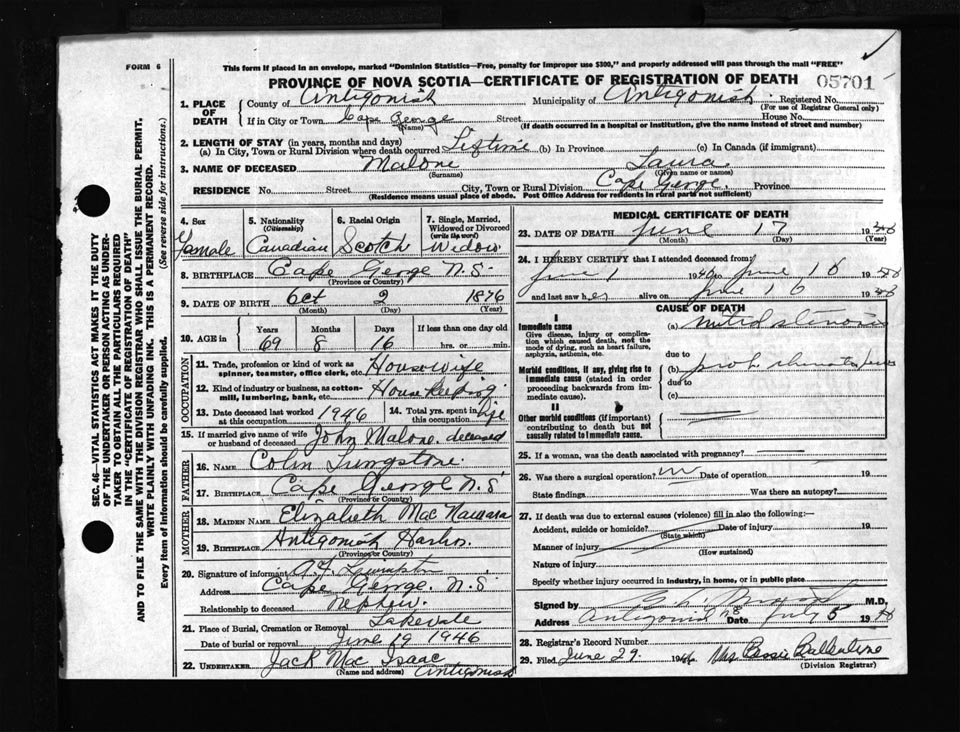 FORM 6
This form if placed in an envelope, marked "Dominion Statistics—Free, penalty for improper use $300," and properly addressed will pass through the mail "FREE"
PROVINCE OF NOVA SCOTIA—CERTIFICATE OF REGISTRATION OF DEATH 05701
SEC. 46—VITAL STATISTICS ACT MAKES IT THE DUTY
OF THE UNDERTAKER OR PERSON ACTING AS UNDER-
TAKER TO OBTAIN ALL THE PARTICULARS REQUIRED
IN THE "CERTIFICATE OF REGISTRATION OF DEATH"
AND TO FILE THE SAME WITH THE DIVISION REGISTRAR WHO SHALL ISSUE THE BURIAL PERMIT.
WRITE PLAINLY WITH UNFADING INK. THIS IS A PERMANENT RECORD.
Every item of information should be carefully supplied. (See reverse side for instructions.)
1. PLACE OF DEATH
County of Antigonish Municipality of Antigonish Registered No.
(For use of Registrar General only)
If in City or Town Cape George Street House No.
(Name) (If death occurred in a hospital or institution, give the name instead of street and number)
2. LENGTH OF STAY (in years, months and days)
(a) In City, Town or Rural Division where death occurred Liftime (b) In Province (c) In Canada (if immigrant)
3. NAME OF DECEASED Malone Laura
(Surname) (Given name or names)
RESIDENCE No. Street City, Town or Rural Division Cape George. Province
(Residence means usual place of abode. Post Office Address for residents in rural parts not sufficient)
4. Sex 5. Nationality (Citizenship) 6. Racial Origin 7. Single, Married, Widowed or Divorced (write the word)
Female Canadian Scotch Widow
8. BIRTHPLACE Cape George N.S.
(Province or Country)
9. DATE OF BIRTH Oct 2 1876
(Month) (Day) (Year)
10. AGE in Years Months Days If less than one day old
69 8 16 hrs. or min.
OCCUPATION
11. Trade, profession or kind of work as spinner, teamster, office clerk, etc. Housewife
12. Kind of industry or business, as cotton-mill, lumbering, bank, etc. House Keeping
13. Date deceased last worked at this occupation 1946 14. Total yrs. spent in this occupation Life
15. If married give name of wife or husband of deceased John Malone. deceased
FATHER
16. NAME Colin
17. BIRTHPLACE Cape George N.S
(Province or Country)
MOTHER
18. MAIDEN NAME Elizabeth Mac Namara
19. BIRTHPLACE Antigonish Harbor.
(Province or Country)
20. Signature of informant
Address Cape George N.S
Relationship to deceased Nephew.
21. Place of Burial, Cremation or Removal Lakevale
Date of burial or removal June 19 1946
22. UNDERTAKER Jack Mac Isaac Antigonish
(Name and address)
MEDICAL CERTIFICATE OF DEATH
23. DATE OF DEATH June 17 1946
(Month) (Day) (Year)
24. I HEREBY CERTIFY that I attended deceased from:
June 1 1946 to June 16 1946
and last saw her alive on June 16 1946
CAUSE OF DEATH
I
Immediate cause
Give disease, injury or complication which caused death, not the mode of dying, such as heart failure, asphyxia, asthenia, etc.
(a) mitral stenosis
due to
Morbid conditions, if any, giving rise to immediate cause (stated in order proceeding backwards from immediate cause).
(b) prob. rheumatic
due to
(c)
II
Other morbid conditions (if important) contributing to death but not causally related to immediate cause.
25. If a woman, was the death associated with pregnancy?
26. Was there a surgical operation? no Date of operation 19
State findings Was there an autopsy?
27. If death was due to external causes (violence) fill in also the following:—
Accident, suicide or homicide? Date of injury 19
(State which)
Manner of injury
(How sustained)
Nature of injury
Specify whether injury occurred in industry, in home, or in public place
Signed by M.D,
Address Antigonish NS Date July 5 1946
28. Registrar's Record Number
29. Filed June 29. 1946 Mrs Cassie Ballentine
(Division Registrar)